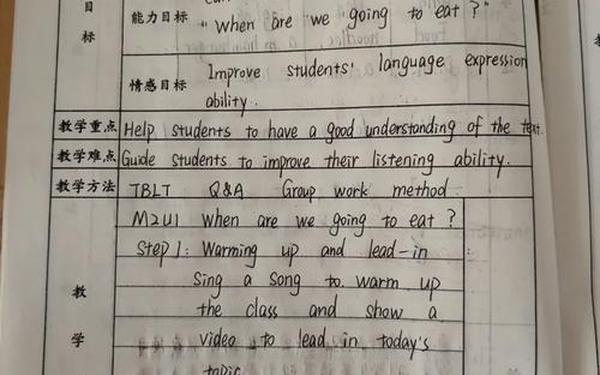 目
标
能力目标
"When are we going to eat?"
情感目标
Improve students' language expression
ability.
教学重点 Help students to have a good understanding of the text.
教学难点 Guide students to improve their listening ability.
教学方法 TBLT Q&A Group work method
M2U1 When are we going to eat?
Step 1: Warming up and lead-in
Sing a song to warm up
教
the class and show a
学
video to lead in today's
topic